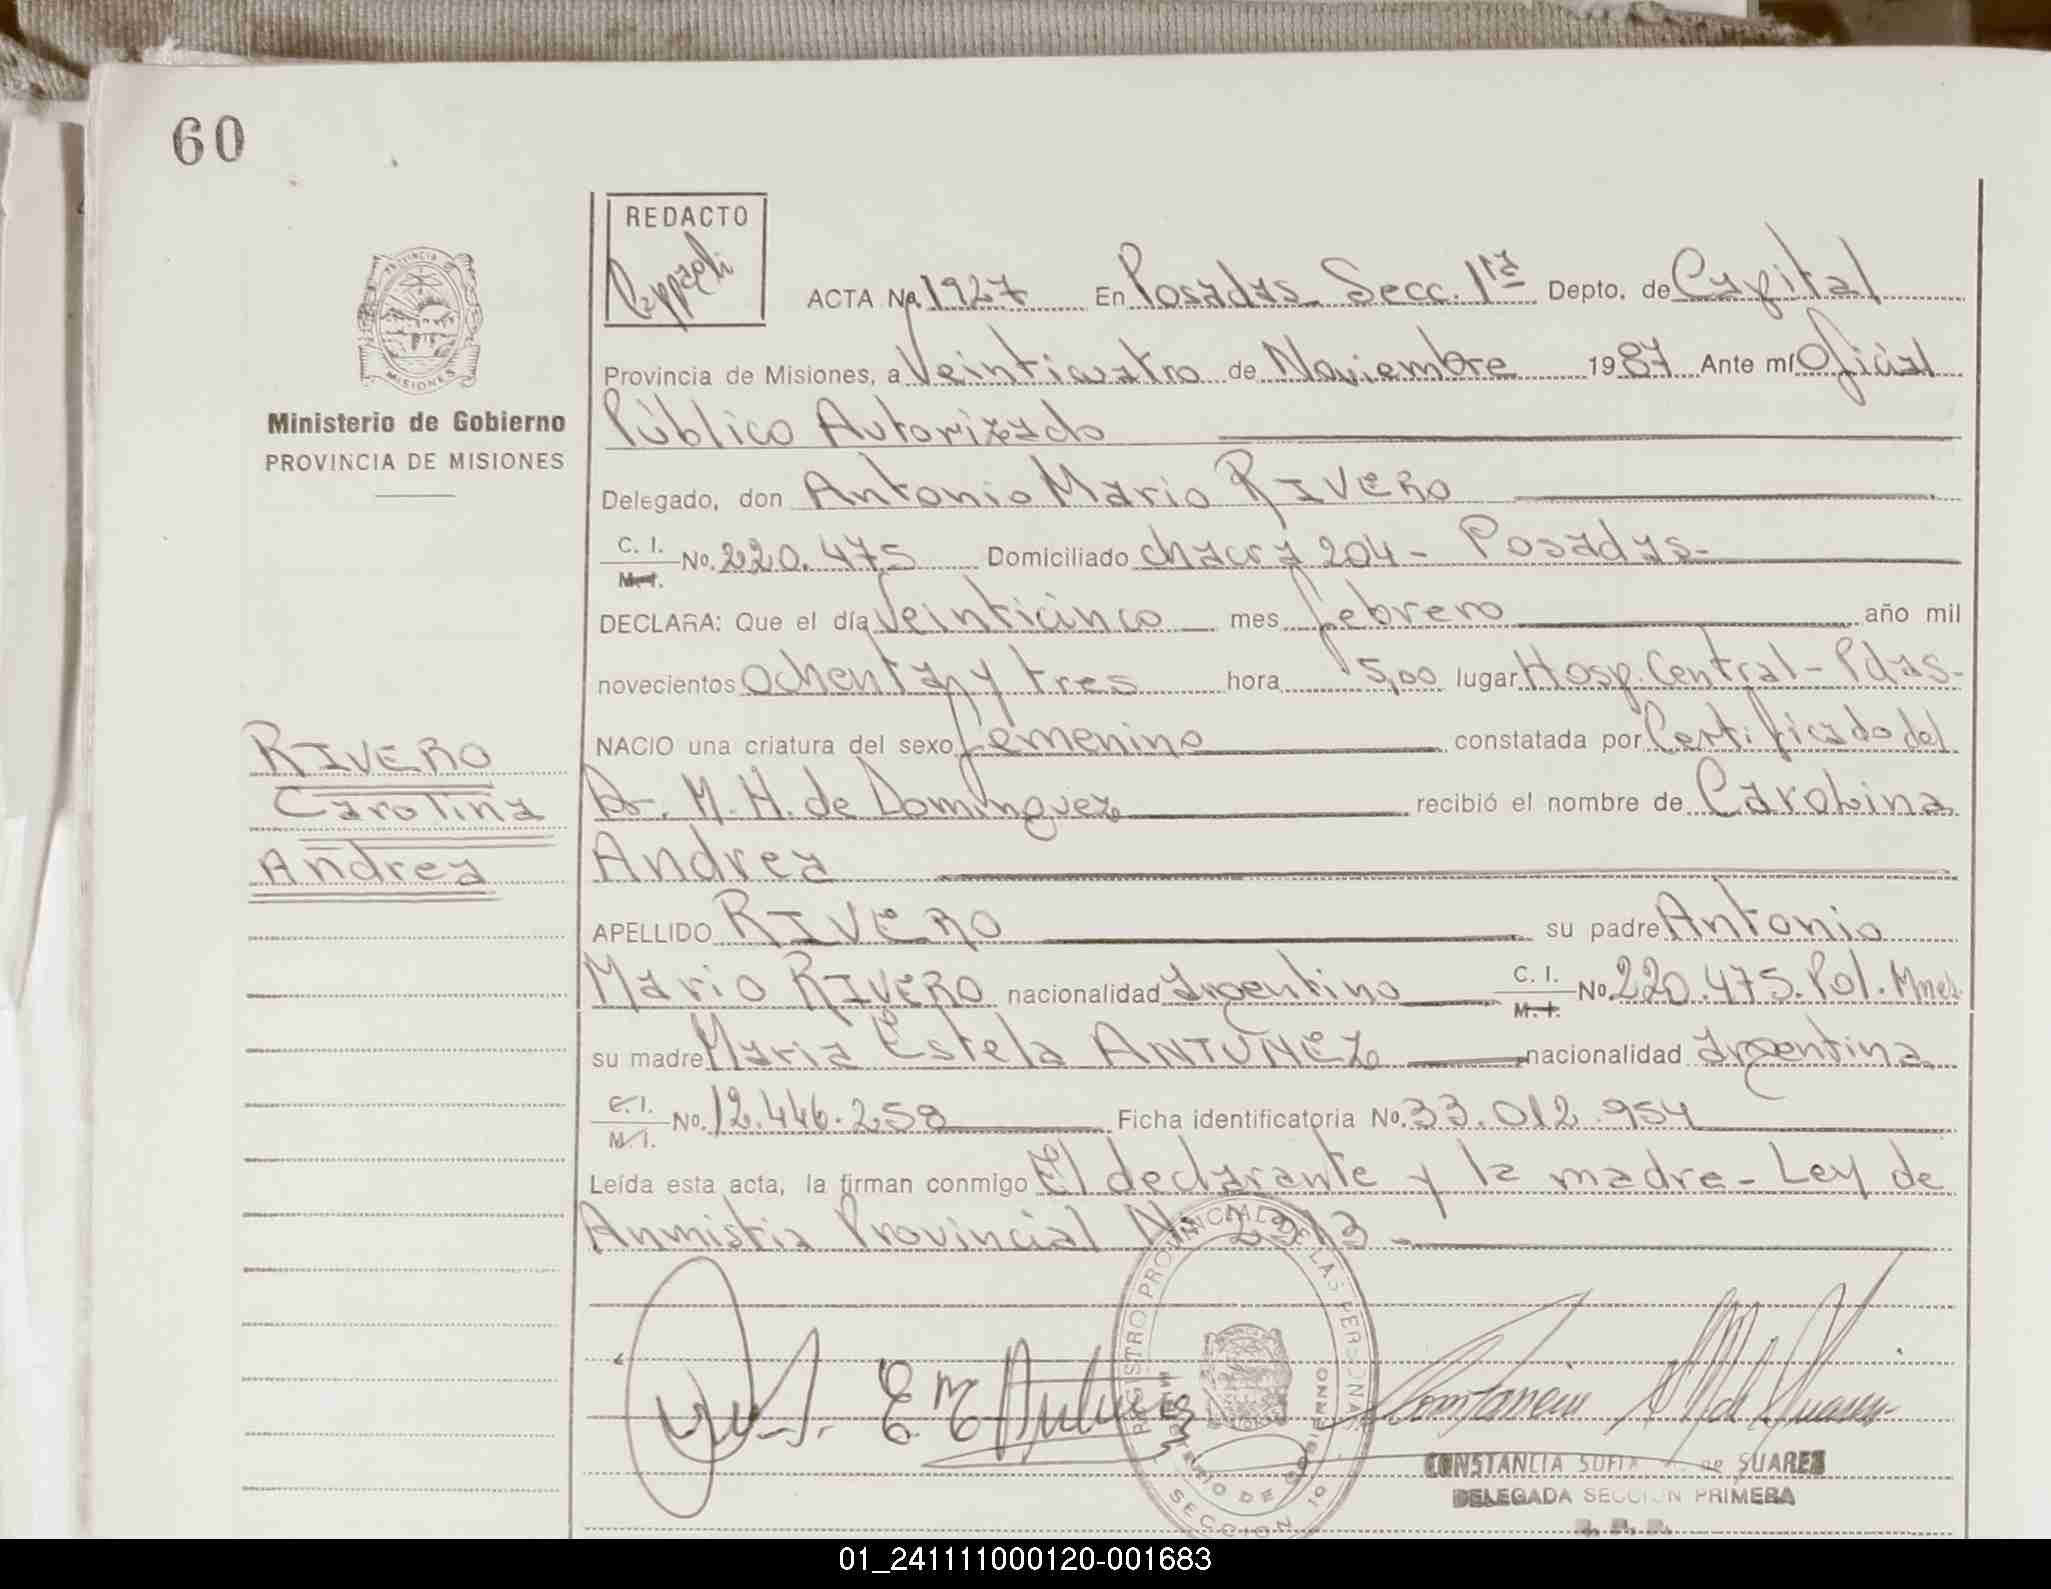 60
REDACTO
PROVINCIA
MISIONES
ACTA No. 1927 En Posadas Secc. 1ra Depto. de Capital
Provincia de Misiones, a Veinticuatro de Noviembre 1987 Ante mí Oficial
Ministerio de Gobierno
Público Autorizado
PROVINCIA DE MISIONES
Delegado, don Antonio Mario RIVERO
C. I. M. I. No. 220.475 Domiciliado chacra 204 - Posadas-
DECLARA: Que el día Veinticinco mes febrero año mil
novecientos Ochenta y tres hora 5,00 lugar Hosp. Central - Pdas-
NACIO una criatura del sexo femenino constatada por Certificado del
RIVERO
Carolina
Dr. M. H. de Dominguez recibió el nombre de Carolina
Andrea
Andrea
APELLIDO RIVERO su padre Antonio
Mario RIVERO nacionalidad argentino C. I. M. I. No. 220.475. Pol. Mnes.
su madre Maria Estela ANTUNEZ nacionalidad argentina
C. I. M. I. No. 12.446.258 Ficha identificatoria No. 33.012.954
Leída esta acta, la firman conmigo El declarante y la madre - Ley de
Anmistia Provincial No 2313.-
REGISTRO PROVINCIAL DE LAS PERSONAS
MINISTERIO DE GOBIERNO
SECCION 1a
CONSTANCIA SOFIA de SUAREZ
DELEGADA SECCION PRIMERA
01_241111000120-001683